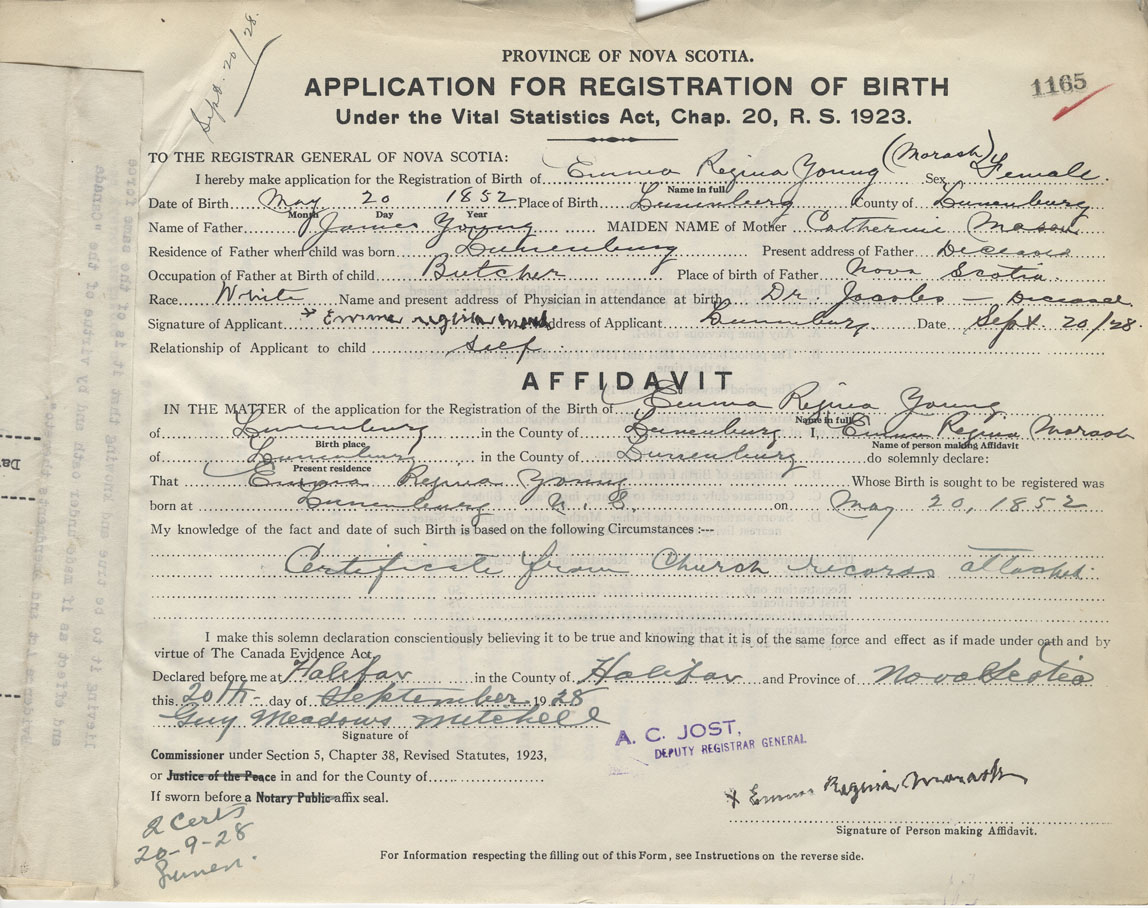 Sept. 20/28.
PROVINCE OF NOVA SCOTIA.
APPLICATION FOR REGISTRATION OF BIRTH
1165
Under the Vital Statistics Act, Chap. 20, R. S. 1923.
TO THE REGISTRAR GENERAL OF NOVA SCOTIA:
I hereby make application for the Registration of Birth of Emma Regina Young (Morash) Sex Female.
Name in full
Date of Birth May 20 1852 Place of Birth Lunenburg County of Lunenburg
Month Day Year
Name of Father James Young MAIDEN NAME of Mother Catherine Mason
Residence of Father when child was born Lunenburg Present address of Father Deceased
Occupation of Father at Birth of child Butcher Place of birth of Father Nova Scotia.
Race White Name and present address of Physician in attendance at birth Dr. Jacobs — Deceased.
Signature of Applicant x Emma regina Address of Applicant Lunenburg Date Sept. 20/28.
Relationship of Applicant to child self
AFFIDAVIT
IN THE MATTER of the application for the Registration of the Birth of Emma Regina Young
Name in full
of Lunenburg in the County of Lunenburg I, Emma Regina Morash
Birth place Name of person making Affidavit
of Lunenburg in the County of Lunenburg do solemnly declare:
Present residence
That Emma Regina Young Whose Birth is sought to be registered was
born at Lunenburg N. S. on May 20, 1852
My knowledge of the fact and date of such Birth is based on the following Circumstances :---
Certificate from Church records attached.
I make this solemn declaration conscientiously believing it to be true and knowing that it is of the same force and effect as if made under oath and by
virtue of The Canada Evidence Act.
Declared before me at Halifax in the County of Halifax and Province of Nova Scotia
this 20th day of September 1928
Guy Meadows Mitchell
Signature of
A. C. JOST,
DEPUTY REGISTRAR GENERAL
Commissioner under Section 5, Chapter 38, Revised Statutes, 1923,
or Justice of the Peace in and for the County of
If sworn before a Notary Public affix seal.
x Emma Regina Morash
Signature of Person making Affidavit.
2 Certs
20-9-28
For Information respecting the filling out of this Form, see Instructions on the reverse side.